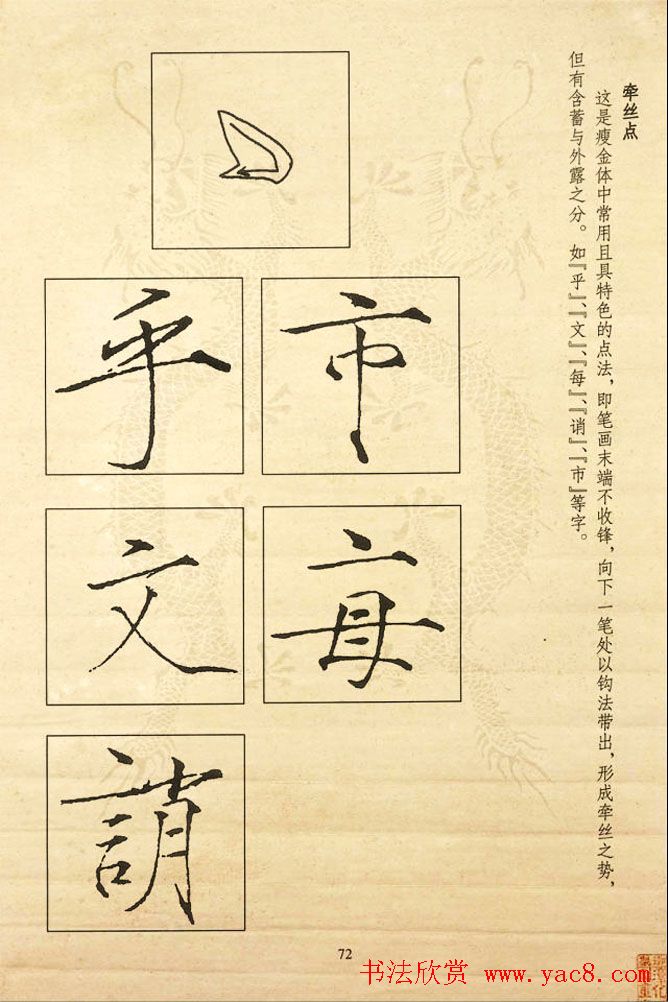 牵丝点
这是瘦金体中常用且具特色的点法，即笔画末端不收锋，向下一笔处以钩法带出，形成牵丝之势，
但有含蓄与外露之分。如『乎』、『文』、『每』、『诮』、『市』等字。
乎
市
文
每
誚
72
书法欣赏 www.yac8.com